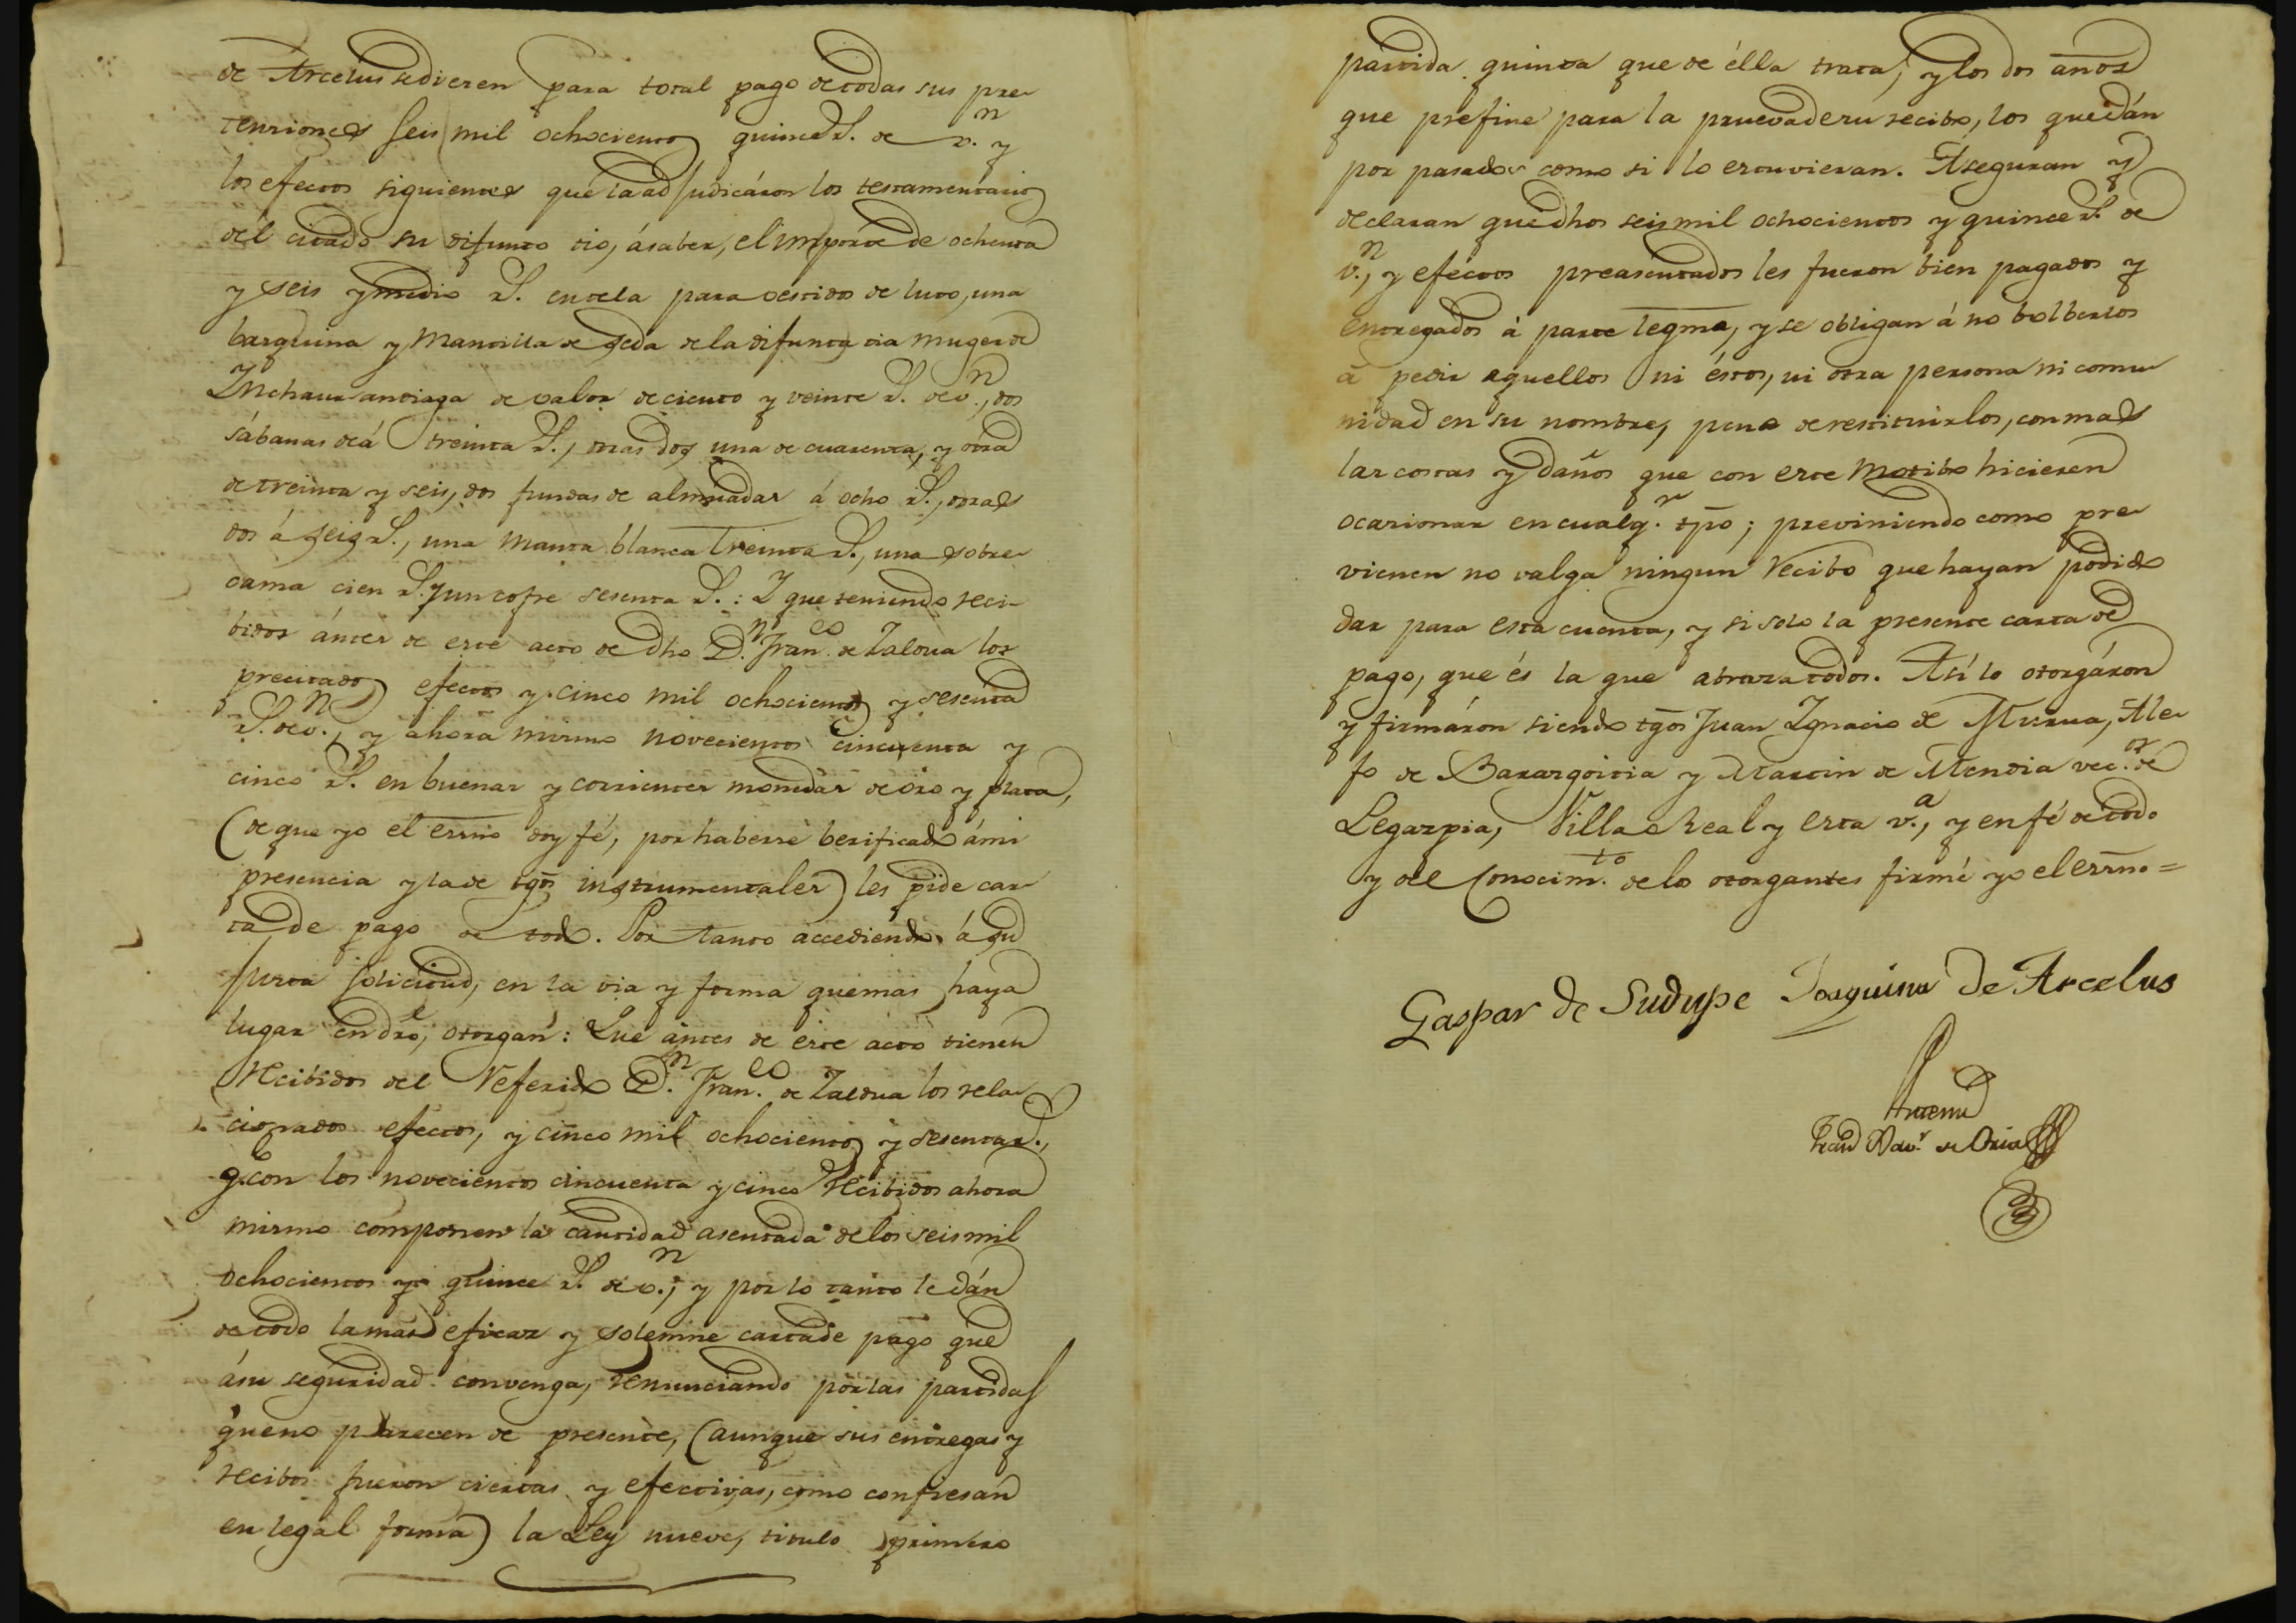 de Arcelus sedieren para total pago de todas sus pre-
tensiones seis mil ochocientos quince r.s de v.n y
los efectos siguientes que la adjudicáron los testamentarios
del citado su difunto tio, ásaber, el importe de ochenta
y seis y medio r.s en tela para vestidos de luto, una
basquina y Mantilla de seda de la difunta tia muger de
Inchaurandiaga de valor de ciento y veinte r.s de v.n, dos
sábanas de á treinta r.s, otras dos una de cuarenta, y otra
de treinta y seis, dos fundas de almuadas á ocho r.s, otras
dos á seis r.s, una Manta blanca treinta r.s, una sobre-
cama cien r.s y un cofre sesenta r.s: Y que teniendo reci-
bidos ántes de este acto de dho D.n Fran.co de Zaldua los
precitados efectos y cinco mil ochocientos y sesenta
r.s de v.n, y ahora mismo novecientos cincuenta y
cinco r.s en buenas y corrientes monedas de oro y plata,
(de que yo el essno doy fé, por haberse berificado ámi
presencia y la de tgos instrumentales) les pide car-
ta de pago de todo. Por tanto accediendo á su
justa solicitud, en la via y forma que mas haya
lugar en dro, otorgan: Que ántes de este acto tienen
Recibidos del Referido D.n Fran.co de Zaldua los rela-
cionados efectos, y cinco mil ochocientos y sesenta r.s,
q.e con los novecientos cincuenta y cinco Recibidos ahora
mismo componen la cantidad asentada de los seis mil
ochocientos y quince r.s de v.n; y por lo tanto le dán
de todo la mas eficaz y solemne carta de pago que
ásu seguridad convenga, renunciando por las partidas
que no parecen de presente, (aunque sus entregas y
recibos fueron ciertas y efectivas, como confiesan
en legal forma) la Ley nueve, titulo primero
partida quinta que de élla trata, y los dos años
que prefine para la prueva de su recibo, los que dán
por pasados como si lo estuvieran. Aseguran y
declaran que dhos seis mil ochocientos y quince r.s de
v.n, y eféctos preasentados les fueron bien pagados y
entregados á parte legma, y se obligan á no bolberlos
á pedir aquellos ni éstos, ni otra persona ni comu-
nidad en su nombre, pena de restituirlos, con mas
las costas y daños que con este Motibo hiciesen
ocasionar en cualq.r tpo; previniendo como pre-
vienen no valga ningun Recibo que hayan podido
dar para esta cuenta, y si solo la presente carta de
pago, que és la que abraza todos. Así lo otorgáron
y firmáron siendo tgos Juan Ignacio de Murua, Ale-
jo de Barasgoitia y Martin de Mendia vec.os de
Legazpia, Villa Real y esta v.a, y en fé de todo
y del Conocim.to de los otorgantes firmé yo el essno=
Gaspar de Sudupe Joaquina de Arcelus
Antemi